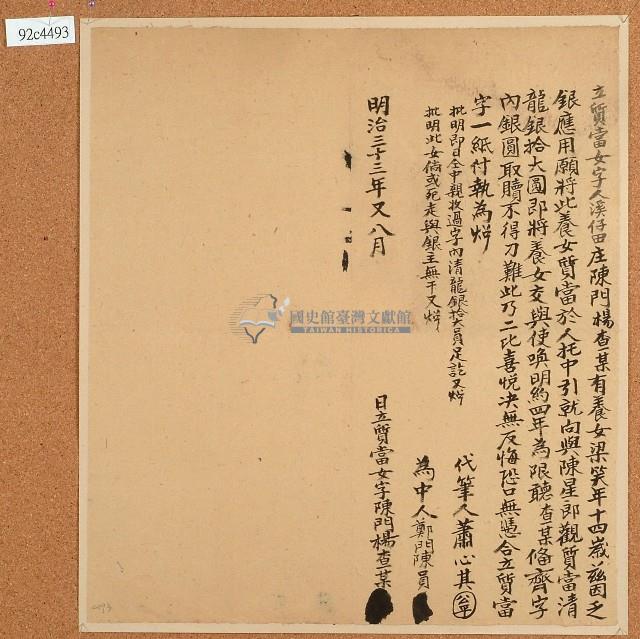 92c4493
立質當女字人溪仔田庄陳門楊查某有養女梁笑年十四歲茲因乏
銀應用願將此養女質當於人托中引就向與陳星郎觀質當清
龍銀拾大圓即將養女交與使喚明約四年為限聽查某俻齊字
內銀圓取贖不得刁難此乃二比喜悅决無反悔恐口無憑合立質當
字一紙付執為炤
批明即日仝中親收過字內清龍銀拾大員足訖又炤
批明此女倘或死走與銀主無干又炤
代筆人蕭心其
為中人鄭門陳員
明治三十三年又八月
日立質當女字陳門楊查某
國史館臺灣文獻館
TAIWAN HISTORICA